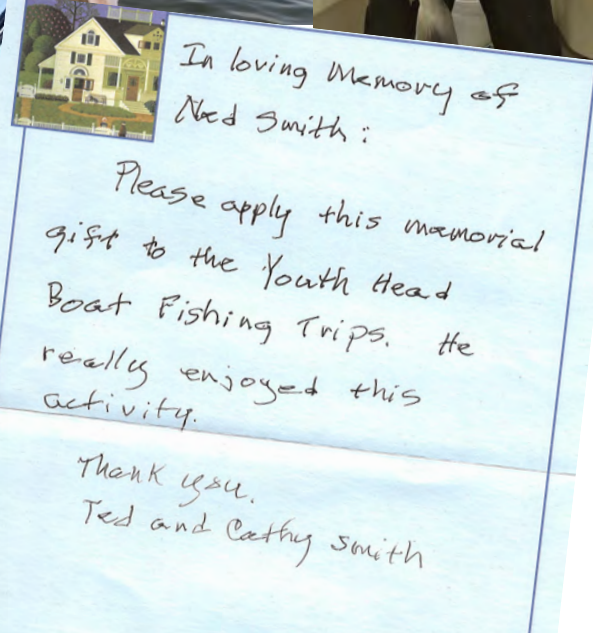 In loving Memory of
Ned Smith:
Please apply this memorial
gift to the Youth Head
Boat Fishing Trips. He
really enjoyed this
activity.
Thank you.
Ted and Cathy Smith